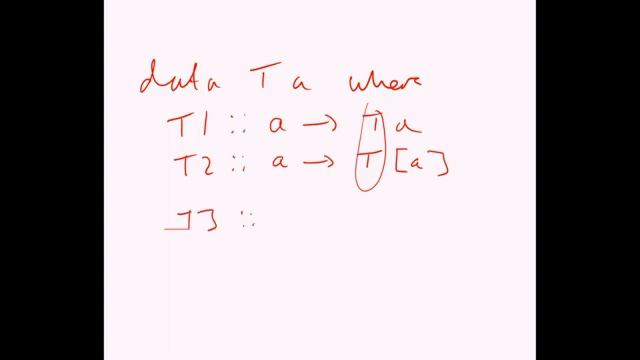 data T a where
T1 :: a → T a
T2 :: a → T [a]
T3 ::